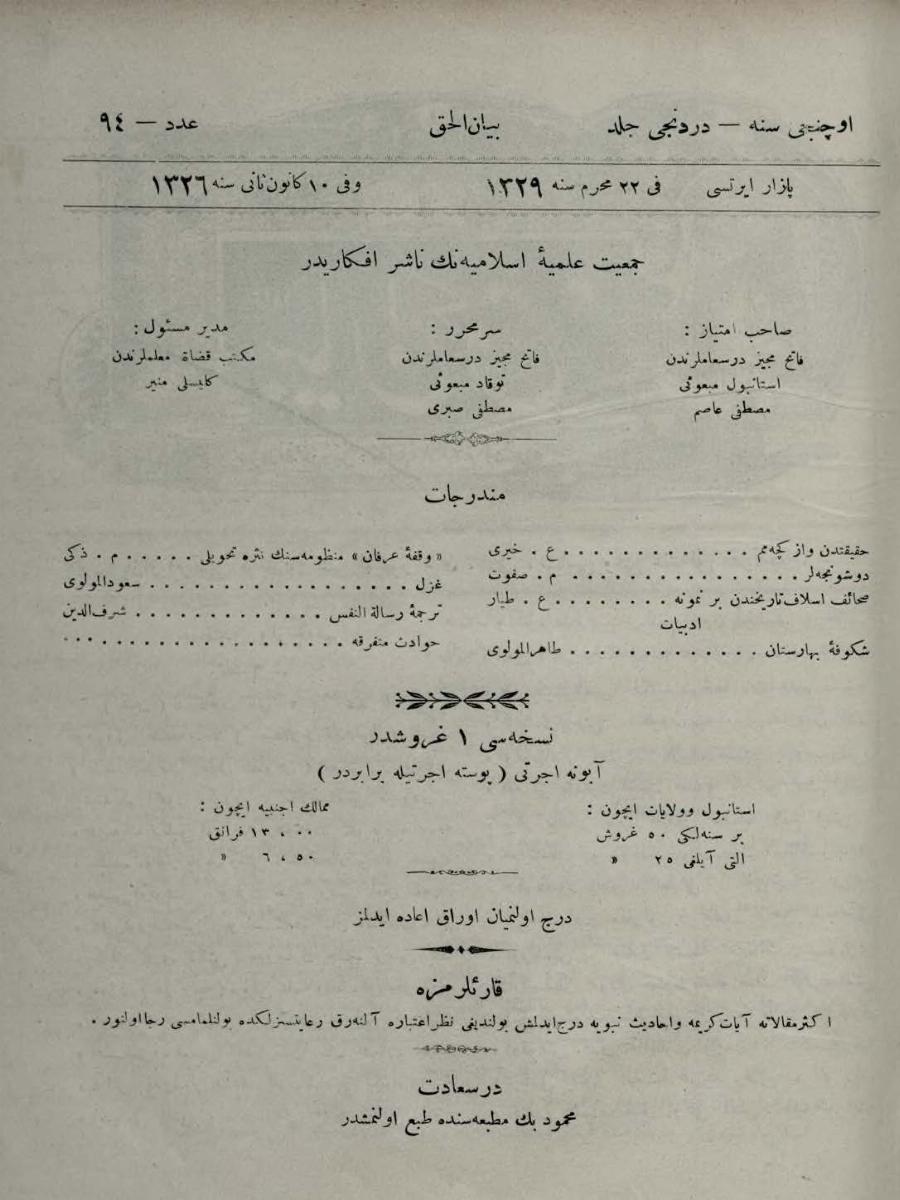 اوچنجی سنه — دردنجی جلد بیان‌الحق عدد — ٩٤
پازار ایرتسی فی ٢٢ محرم سنه ١٣٢٩ وفی ١٠ كانون‌ثانی سنه ١٣٢٦
جمعیت علمیهٔ اسلامیه‌نك ناشر افكاریدر
صاحب امتیاز :
فاتح مجیز درسعاملرندن
استانبول مبعوثی
مصطفی عاصم
سر محرر :
فاتح مجیز درسعاملرندن
توقاد مبعوثی
مصطفی صبری
مدیر مسئول :
مكتب قضاة معلملرندن
كلیسلی منیر
مندرجات
حقیقتدن واز كچه‌مم . . . . . . . . . . . . . ع . خیری
دوشونجه‌لر . . . . . . . . . . . . . . . . م . صفوت
صحائف اسلاف تاریخندن بر نمونه . . . . . . . . ع . طیار
ادبیات
شكوفهٔ بهارستان . . . . . . . . . . . . . طاهرالمولوی
« وقفهٔ عرفان » منظومه‌سنك نثره تحویلی . . . . . م . ذكی
غزل . . . . . . . . . . . . . . . . . . سعودالمولوی
ترجمهٔ رسالة النفس . . . . . . . . . . . . . شرف‌الدین
حوادث متفرقه . . . . . . . . . . . . . . . . . ...
نسخه‌سی ١ غروشدر
آبونه اجرتی ( پوسته اجرتیله برابردر )
استانبول وولایات ایچون :
بر سنه‌لكی ٥٠ غروش
التی آیلغی ٢٥ «
ممالك اجنبیه ایچون :
١٣،٠٠ فرانق
٦،٥٠ «
درج اولنمیان اوراق اعاده ایدلمز
قارئلرمزه
اكثر مقالاته آیات كریمه واحادیث نبویه درج ایدلمش بولندیغی نظر اعتباره آلنه‌رق رعایتسزلكده بولنلمامسی رجا اولنور .
درسعادت
محمود بك مطبعه‌سنده طبع اولنمشدر